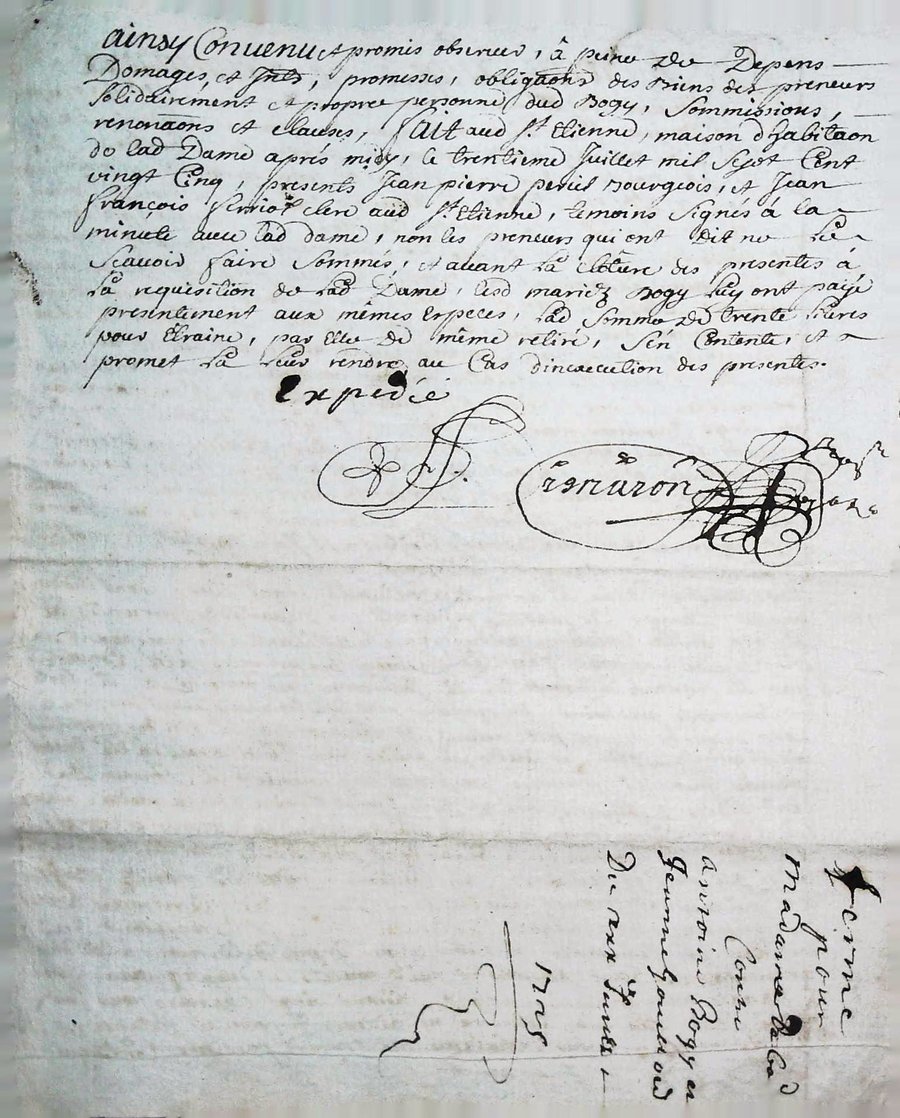 ainsy Convenu et promis observer, à peine de Depens
Domages, et Jnts, promesses, obligaõns des Biens des preneurs
solidairement et propre personne dud Bogy, sommissions,
renonaõns et clauses, fait aud St. Etienne, maison d'habitaõn
de lad Dame aprés midy, le trentieme Juillet mil Sept Cent
vingt Cinq, presents Jean pierre Bourgeois, et Jean
françois clerc aud St. Etienne, temoins signés à la
minute avec lad dame, non les preneurs qui ont Dit ne le
scavoir faire sommés, et avant la cloture des presentes à
la requisition de lad Dame, lesd mariez Bogy luy ont payé
presentement aux mêmes Especes, lad somme de trente livres
pour Etraine, par elle de même retiré, s'en Contente, et
promet la leur rendre au Cas d'inexecution des presentes.
Expedié
ferme
pour
Madame
Contre
antoine Bogy et
Jeanne
Du xxx Juillet
1725